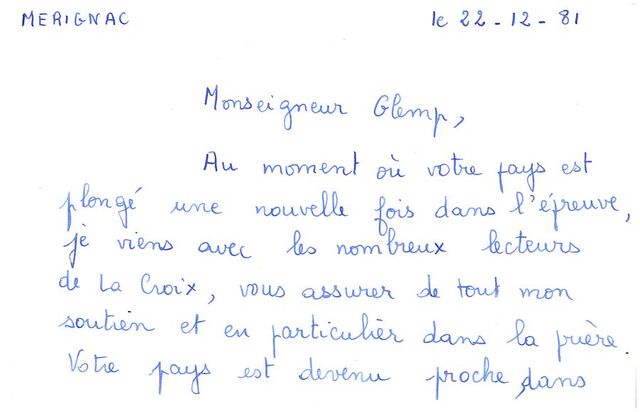 MERIGNAC le 22-12-81
Monseigneur Glemp,
Au moment où votre pays est
plongé une nouvelle fois dans l'épreuve,
je viens avec les nombreux lecteurs
de La Croix, vous assurer de tout mon
soutien et en particulier dans la prière.
Votre pays est devenu proche, dans